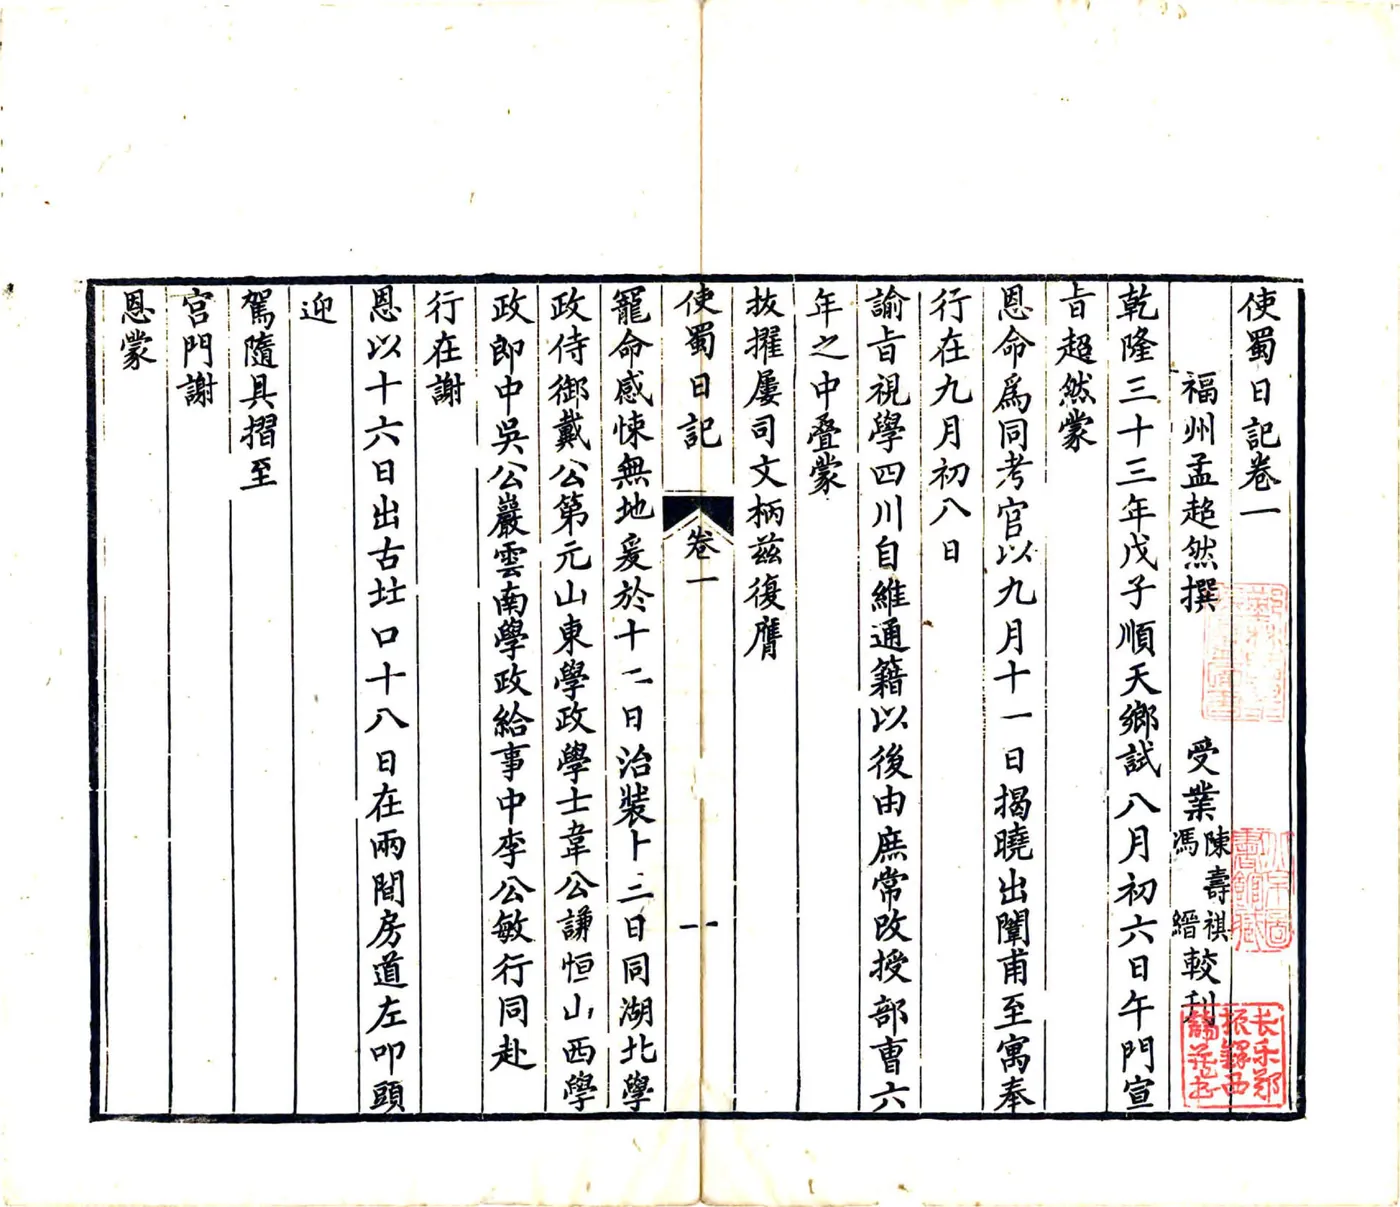 使蜀日記卷一
福州孟超然撰 受業陳壽祺馮縉較刊
乾隆三十三年戊子順天鄉試八月初六日午門宣
旨超然蒙
恩命爲同考官以九月十一日揭曉出闈甫至寓奉
行在九月初八日
諭旨視學四川自維通籍以後由庶常改授部曹六
年之中叠蒙
拔擢屢司文柄茲復膺
使蜀日記 卷一 一
寵命感悚無地爰於十二日治裝卜二日同湖北學
政侍御戴公第元山東學政學士韋公謙恒山西學
政郎中吳公巖雲南學政給事中李公敏行同赴
行在謝
恩以十六日出古北口十八日在兩間房道左叩頭
迎
駕隨具摺至
宮門謝
恩蒙
北京圖書館藏
長樂鄭振鐸西諦藏書